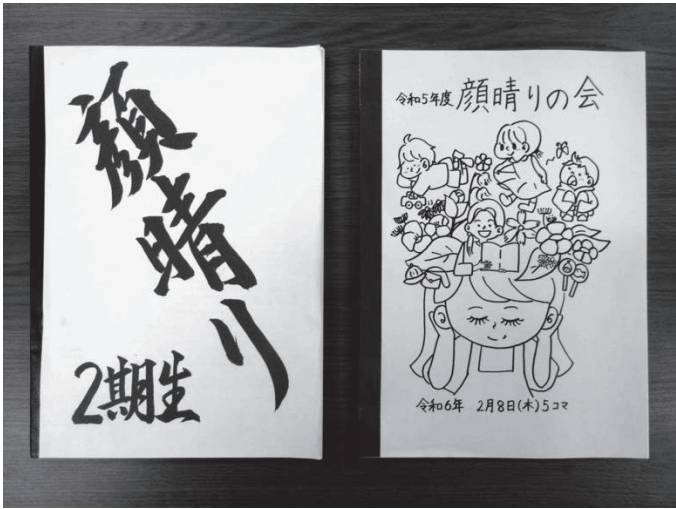 顔晴り
2期生
令和5年度 顔晴りの会
令和6年 2月8日(木)5コマ